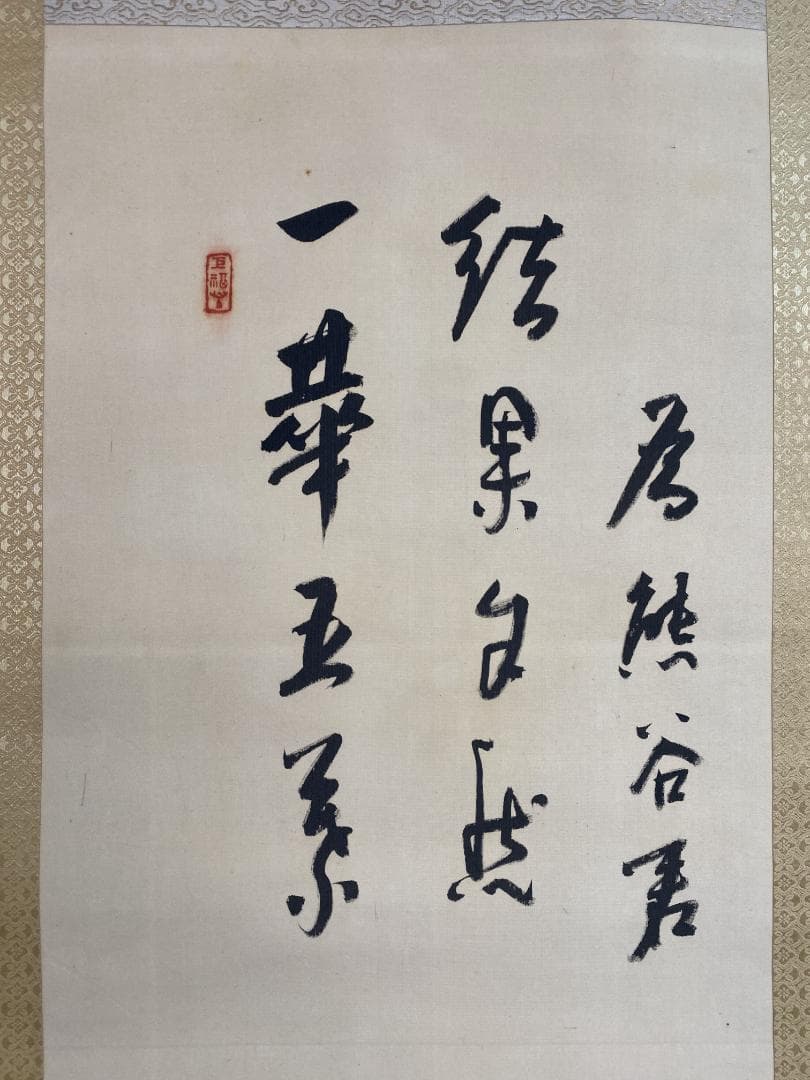 一華五葉
結果自然
為熊谷君